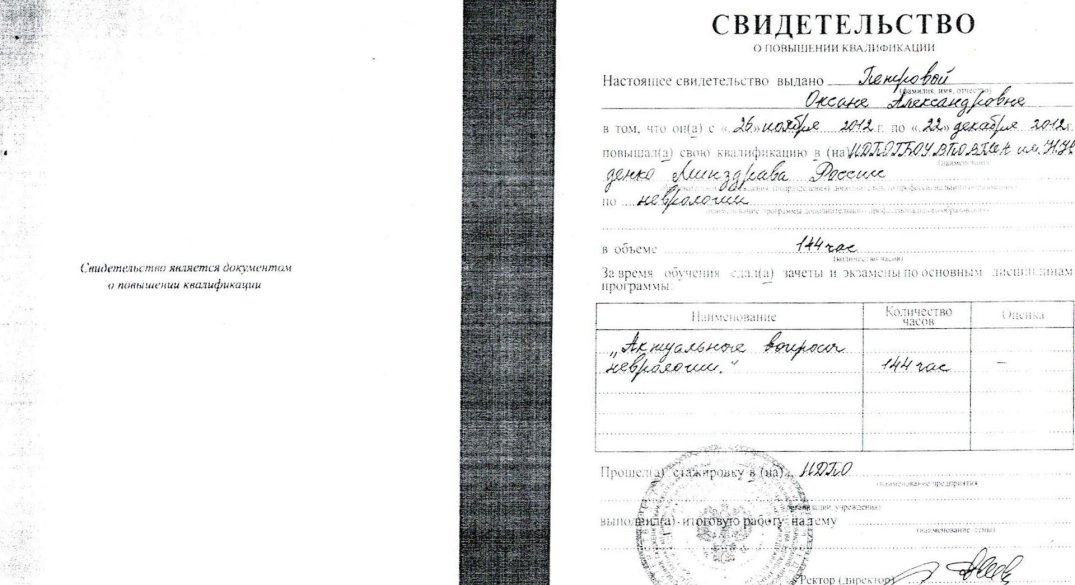 Свидетельство является документом
о повышении квалификации
СВИДЕТЕЛЬСТВО
О ПОВЫШЕНИИ КВАЛИФИКАЦИИ
Настоящее свидетельство выдано
(фамилия, имя, отчество)
Оксане Александровне
в том, что он(а) с «26» ноября 2012 г. по «22» декабря 2012 г.
повышал(а) свою квалификацию в (на) им. Н.Н.
(наименование)
денко Минздрава России
по неврологии
(наименование программы дополнительного профессионального образования)
в объеме 144 час
(количество часов)
За время обучения сдал(а) зачеты и экзамены по основным дисциплинам
программы:
Наименование Количество часов Оценка
„Актуальные вопросы
неврологии." 144 час –
Прошел(а) стажировку в (на) ИДПО
(наименование предприятия
организации, учреждения)
выполнил(а) итоговую работу на тему
(наименование темы)
Ректор (директор)